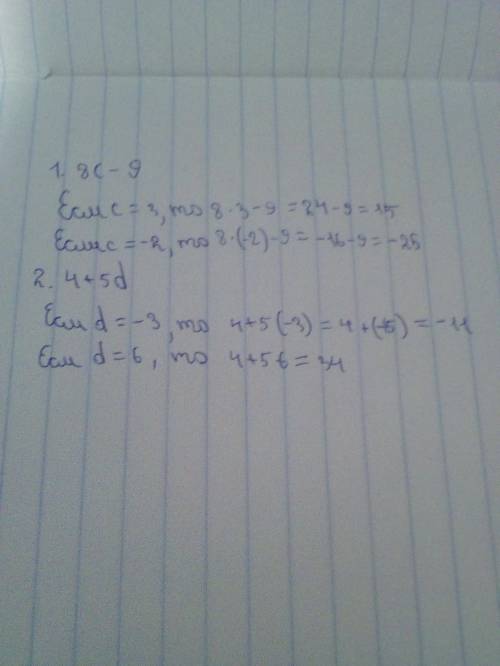 1. 8c - 9
Если c = 3, то 8 · 3 - 9 = 24 - 9 = 15
Если c = -2, то 8 · (-2) - 9 = -16 - 9 = -25
2. 4 + 5d
Если d = -3, то 4 + 5 (-3) = 4 + (-15) = -11
Если d = 6, то 4 + 5 6 = 34